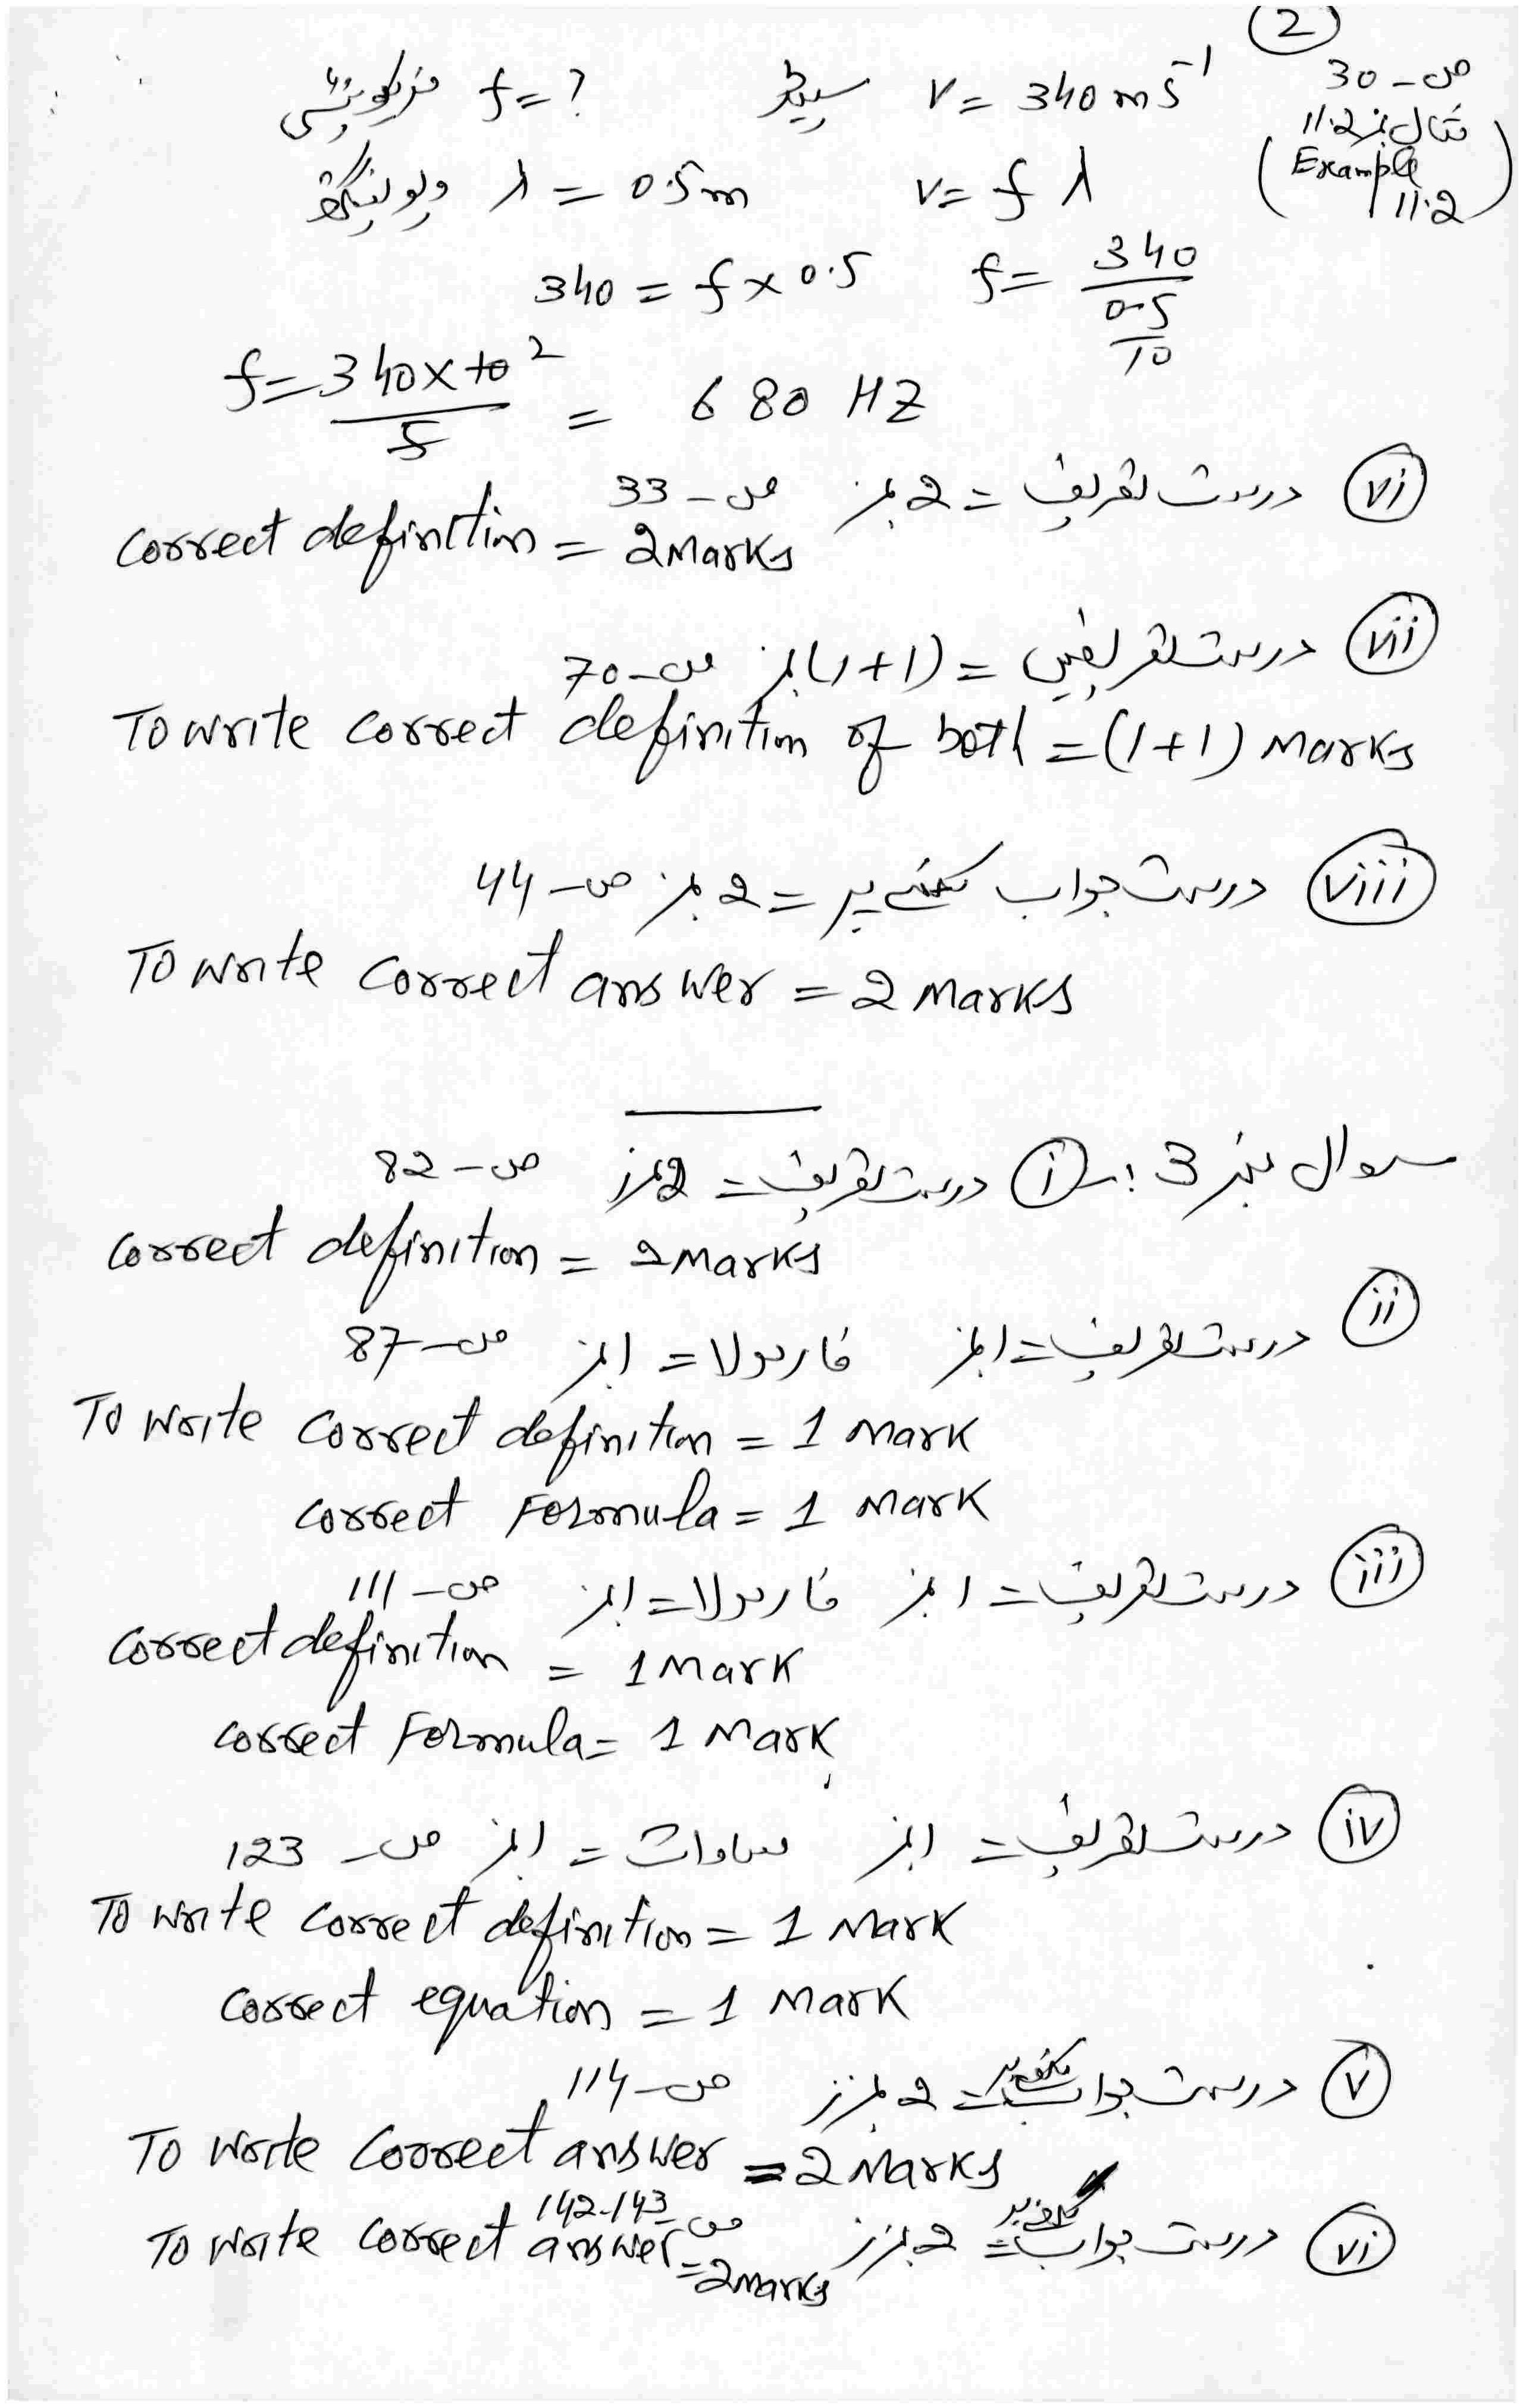 2
ص - 30
مثال نمبر 11.2
(Example 11.2)
سپیڈ v = 340 ms⁻¹ فریکوئنسی f = ?
v = f λ ویولینگتھ λ = 0.5m
340 = f × 0.5 f = 340 / (05/10)
f = 340 × 10 2 / 5 = 680 HZ
(vi) درست تعریف = 2 نمبر ص - 33
correct definition = 2 Marks
(vii) درست تعریفیں = (1+1) نمبر ص - 70
To write correct definition of both = (1+1) Marks
(viii) درست جواب لکھنے پر = 2 نمبر ص - 44
To write correct answer = 2 Marks
سوال نمبر 3 :- (i) درست تعریف = 2 نمبر ص - 82
correct definition = 2 Marks
(ii) درست تعریف = 1 نمبر فارمولا = 1 نمبر ص - 87
To write correct definition = 1 Mark
correct Formula = 1 Mark
(iii) درست تعریف = 1 نمبر فارمولا = 1 نمبر ص - 111
correct definition = 1 Mark
correct Formula = 1 Mark
(iv) درست تعریف = 1 نمبر مساوات = 1 نمبر ص - 123
To write correct definition = 1 Mark
correct equation = 1 Mark
(v) درست جواب لکھنے پر = 2 نمبرز ص - 114
To write correct answer = 2 Marks
(vi) درست جواب لکھنے پر = 2 نمبرز ص 142-143
To write correct answer = 2 marks